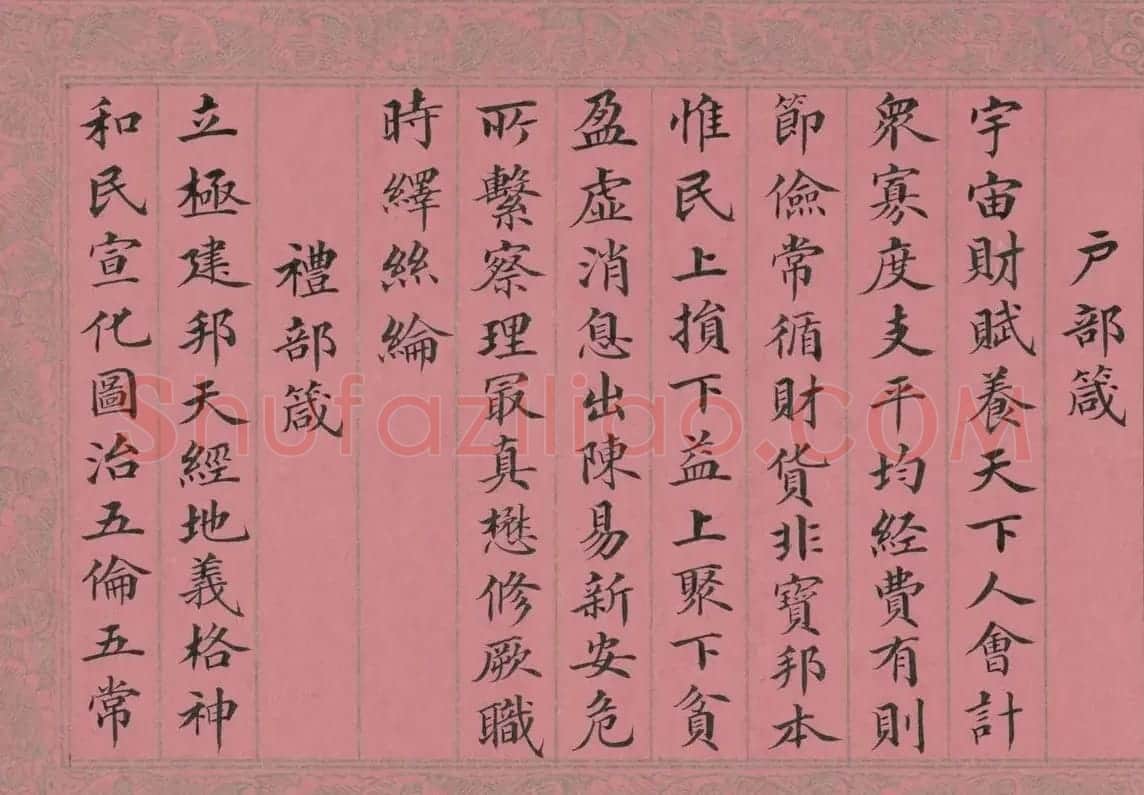 户部箴
宇宙財賦養天下人會計
衆寡度支平均經費有則
節儉常循財貨非寶邦本
惟民上損下益上聚下貧
盈虛消息出陳易新安危
所繫察理最真懋修厥職
時繹絲綸
禮部箴
立極建邦天經地義格神
和民宣化圖治五倫五常
Shufaziliao.COM